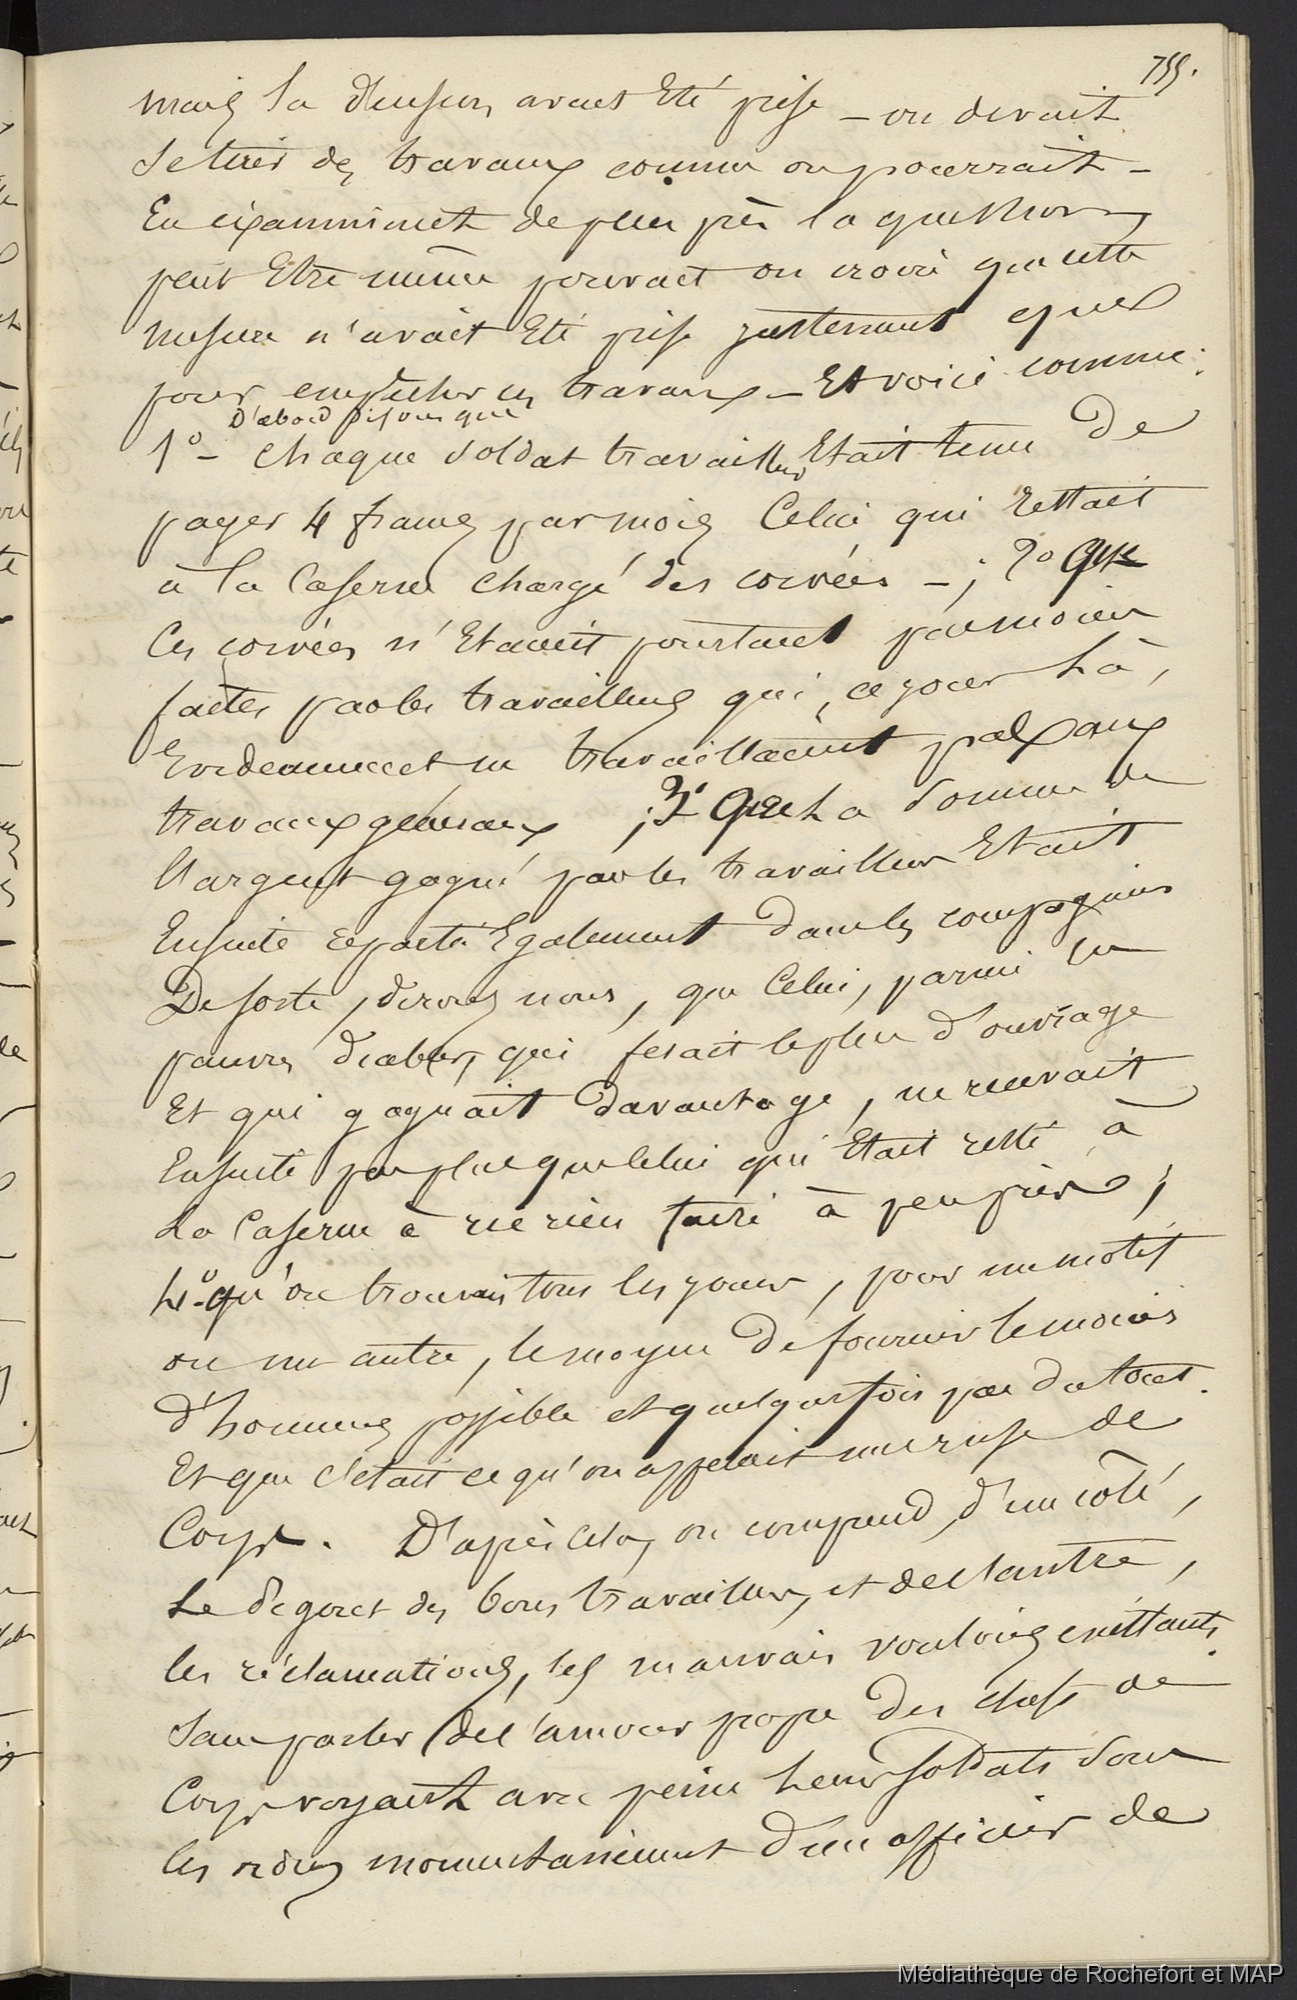 755.
mais la décision avait Eté prise – on devait
se tirer des travaux comme on pourrait –
En examinant de plus près la question,
peut Etre même pouvait on croire que cette
mesure n'avait Eté prise justement que
pour empêcher ces travaux – Et voici comme :
D'abord disons que
1° – Chaque soldat travailleur Etait tenu de
payer 4 francs par mois Celui qui restait
à la Caserne chargé des corvées – ; 2° Que
Ces corvées n'Etaient pourtant pas moins
faites par les travailleurs qui, ce jour là,
Evidemment ne travaillaient pas aux
travaux généraux ; 3° Que la somme de
l'argent gagné par les travailleurs Etait
Ensuite répartie Egalement dans les compagnies
De sorte, dirons nous, que Celui, parmi ces
pauvres diables, qui fesait le plus d'ouvrage
Et qui gagnait davantage, ne recevait
Ensuite pas plus que Celui qui Etait resté à
La Caserne à ne rien faire à peu près ;
4° qu'on trouvait tous les jours, pour un motif
ou un autre, le moyen de fournir le moins
d'hommes possible et quelques fois pas du tout.
Et que c'était ce qu'on appelait une ruse de
Corps. D'après cela, on comprend, d'un côté,
Le dégout des bons travailleurs, et de l'autre,
les réclamations, les mauvais vouloirs existants,
sans parler de l'amour propre des chefs de
Corps voyant avec peine leurs soldats sous
les ordres momentanément d'un officier de
Médiathèque de Rochefort et MAP